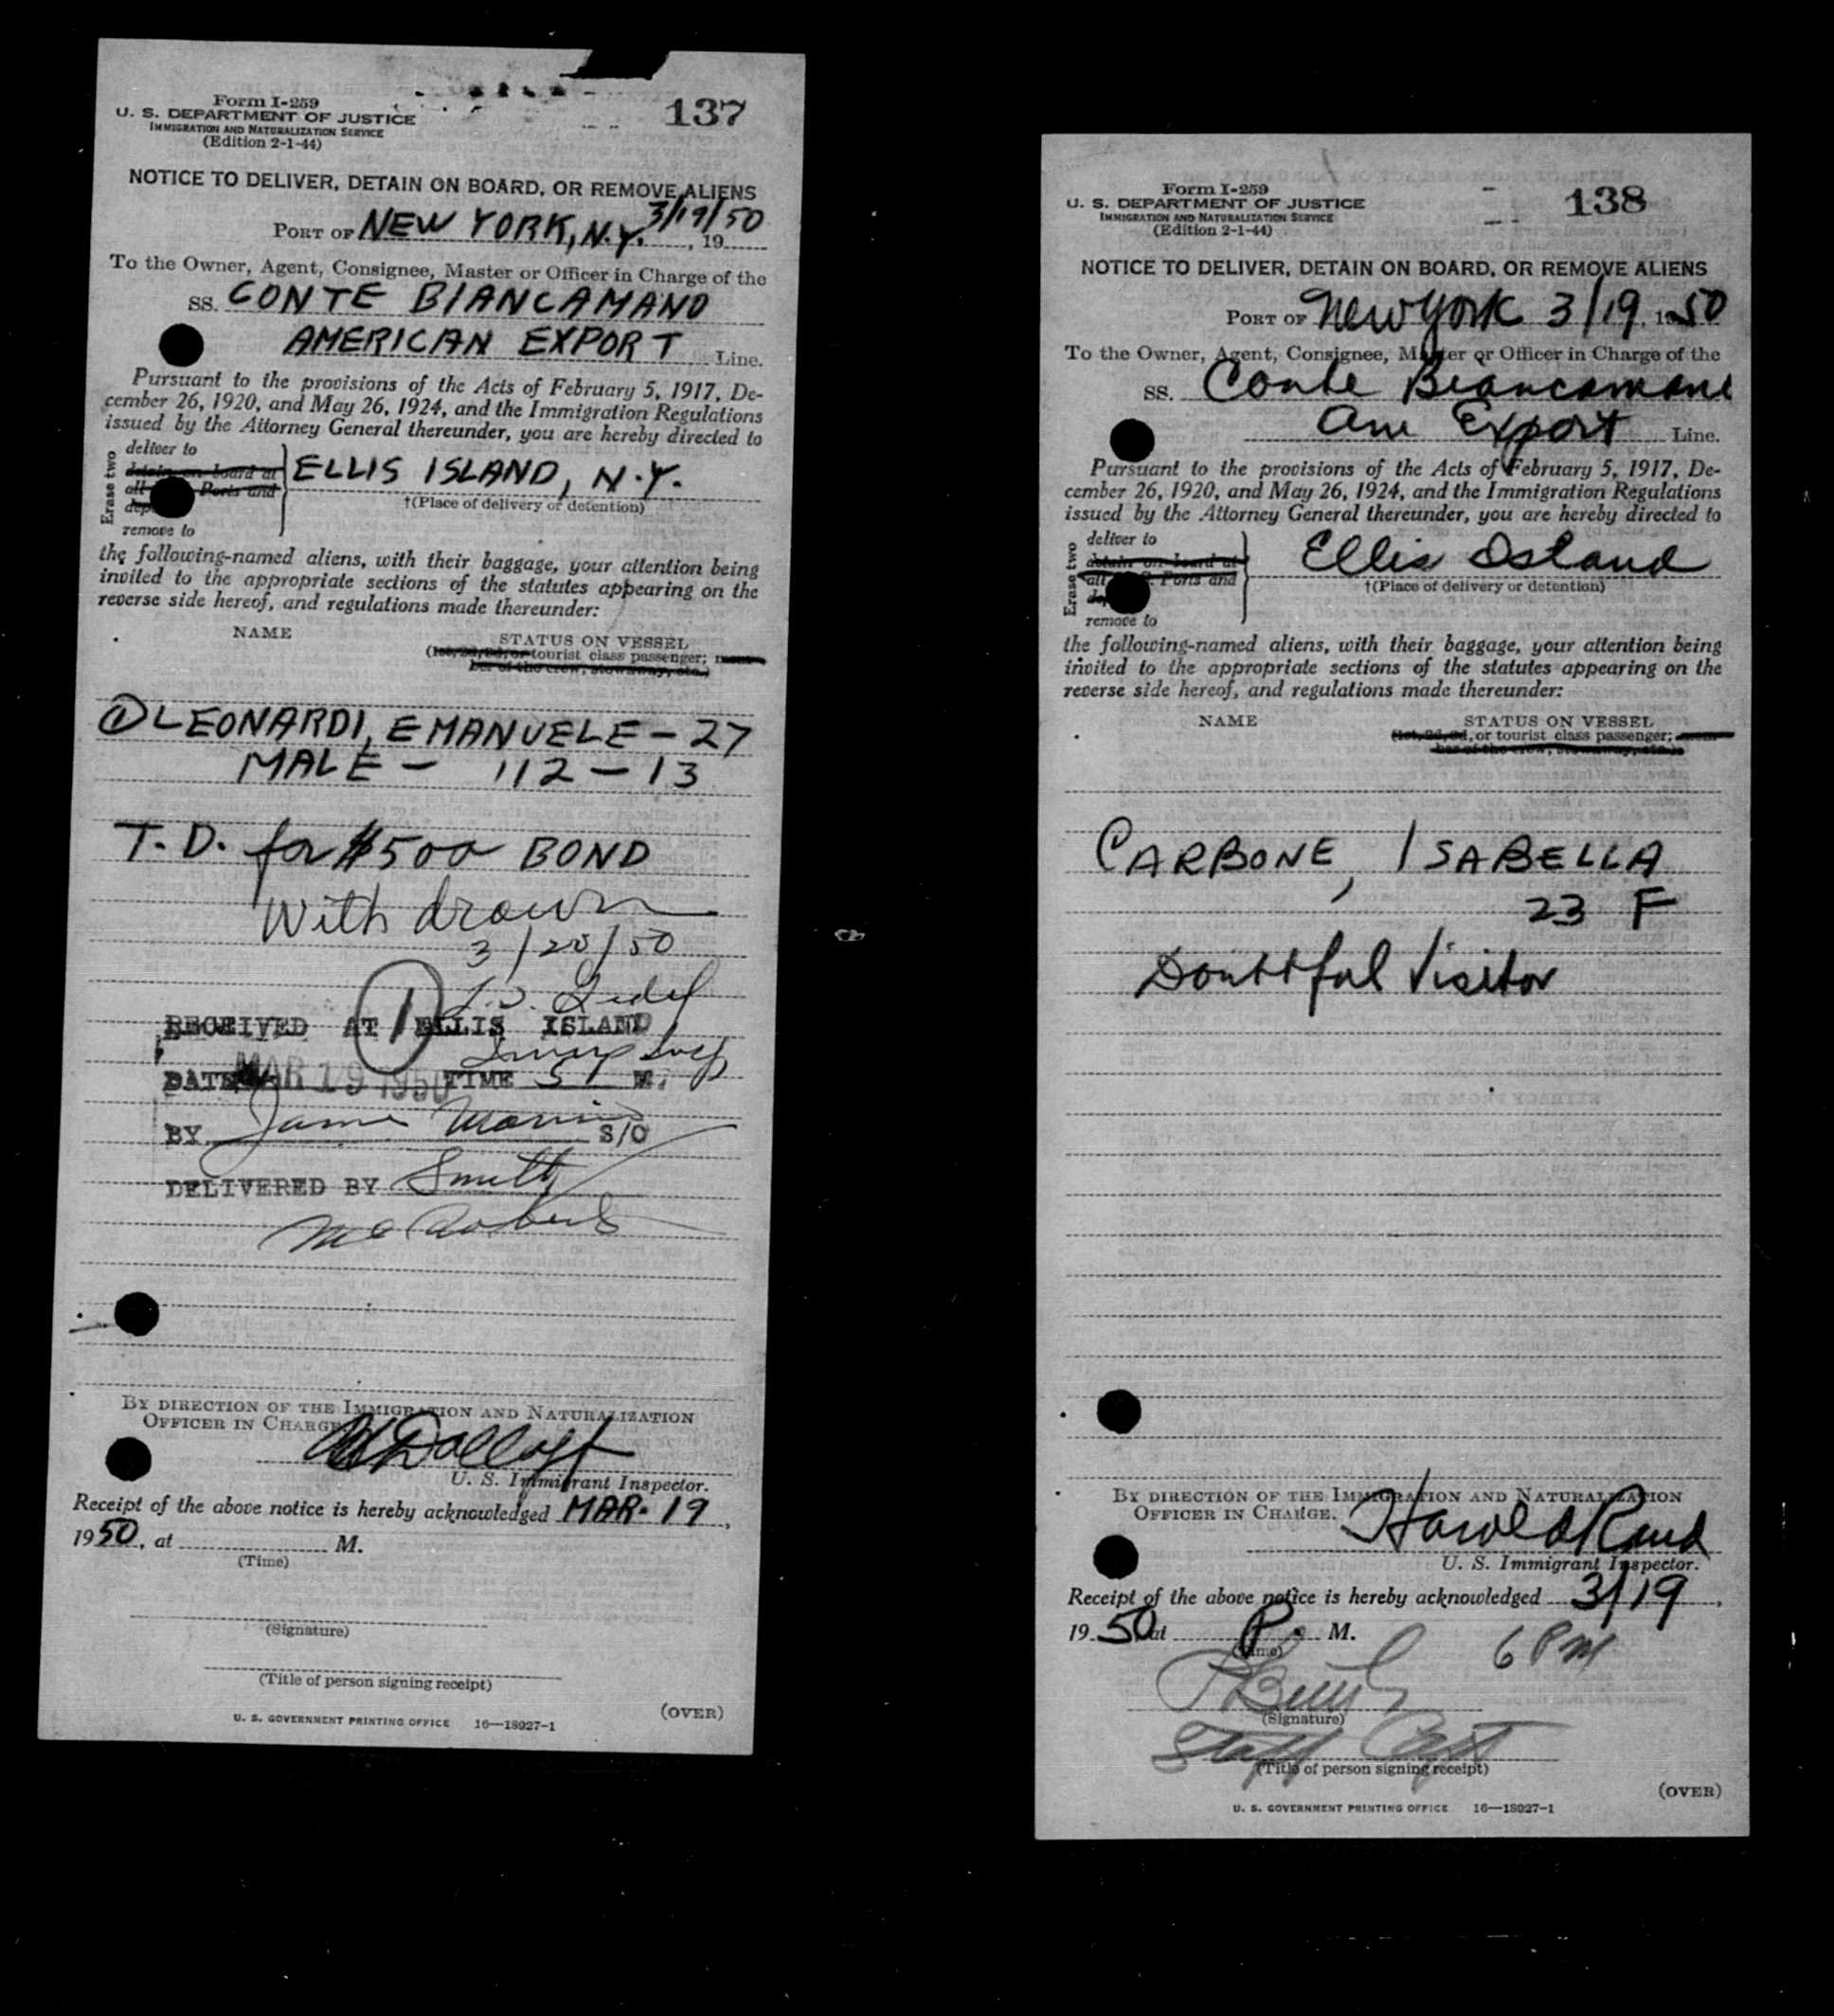 Form I-259
U. S. DEPARTMENT OF JUSTICE
IMMIGRATION AND NATURALIZATION SERVICE
(Edition 2-1-44)
137
NOTICE TO DELIVER, DETAIN ON BOARD, OR REMOVE ALIENS
PORT OF NEW YORK, N.Y. 3/19/50, 19
To the Owner, Agent, Consignee, Master or Officer in Charge of the
SS. CONTE BIANCAMANO
AMERICAN EXPORT Line.
Pursuant to the provisions of the Acts of February 5, 1917, De-
cember 26, 1920, and May 26, 1924, and the Immigration Regulations
issued by the Attorney General thereunder, you are hereby directed to
Erase two
deliver to
detain on board at
all Ports and
remove to
ELLIS ISLAND, N.Y.
†(Place of delivery or detention)
the following-named aliens, with their baggage, your attention being
invited to the appropriate sections of the statutes appearing on the
reverse side hereof, and regulations made thereunder:
NAME
STATUS ON VESSEL
(1st, 2d, 3d, or tourist class passenger; mem-
ber of the crew, stowaway, etc.)
① LEONARDI, EMANUELE - 27
MALE - 112 - 13
T. D. for $500 BOND
With drawn
3/20/50
1
RECEIVED AT ELLIS ISLAND
DATE MAR 19 1950 TIME 51 M.
BY James S/O
DELIVERED BY Smith
BY DIRECTION OF THE IMMIGRATION AND NATURALIZATION
OFFICER IN CHARGE
U. S. Immigrant Inspector.
Receipt of the above notice is hereby acknowledged MAR. 19,
1950, at M.
(Time)
(Signature)
(Title of person signing receipt)
(OVER)
U. S. GOVERNMENT PRINTING OFFICE 16—18927-1
Form I-259
U. S. DEPARTMENT OF JUSTICE
IMMIGRATION AND NATURALIZATION SERVICE
(Edition 2-1-44)
138
NOTICE TO DELIVER, DETAIN ON BOARD, OR REMOVE ALIENS
PORT OF New York 3/19, 1950
To the Owner, Agent, Consignee, Master or Officer in Charge of the
SS. Conte Biancamano
Am Export Line.
Pursuant to the provisions of the Acts of February 5, 1917, De-
cember 26, 1920, and May 26, 1924, and the Immigration Regulations
issued by the Attorney General thereunder, you are hereby directed to
Erase two
deliver to
detain on board at
all Ports and
remove to
Ellis Island
†(Place of delivery or detention)
the following-named aliens, with their baggage, your attention being
invited to the appropriate sections of the statutes appearing on the
reverse side hereof, and regulations made thereunder:
NAME
STATUS ON VESSEL
(1st, 2d, 3d, or tourist class passenger; mem-
ber of the crew, stowaway, etc.)
CARBONE, ISABELLA
23 F
Doubtful Visitor
BY DIRECTION OF THE IMMIGRATION AND NATURALIZATION
OFFICER IN CHARGE.
Harold Rand
U. S. Immigrant Inspector.
Receipt of the above notice is hereby acknowledged 3/19,
1950 at P. M.
(Time)
6 PM
(Signature)
Staff Capt
(Title of person signing receipt)
(OVER)
U. S. GOVERNMENT PRINTING OFFICE 16—18927-1